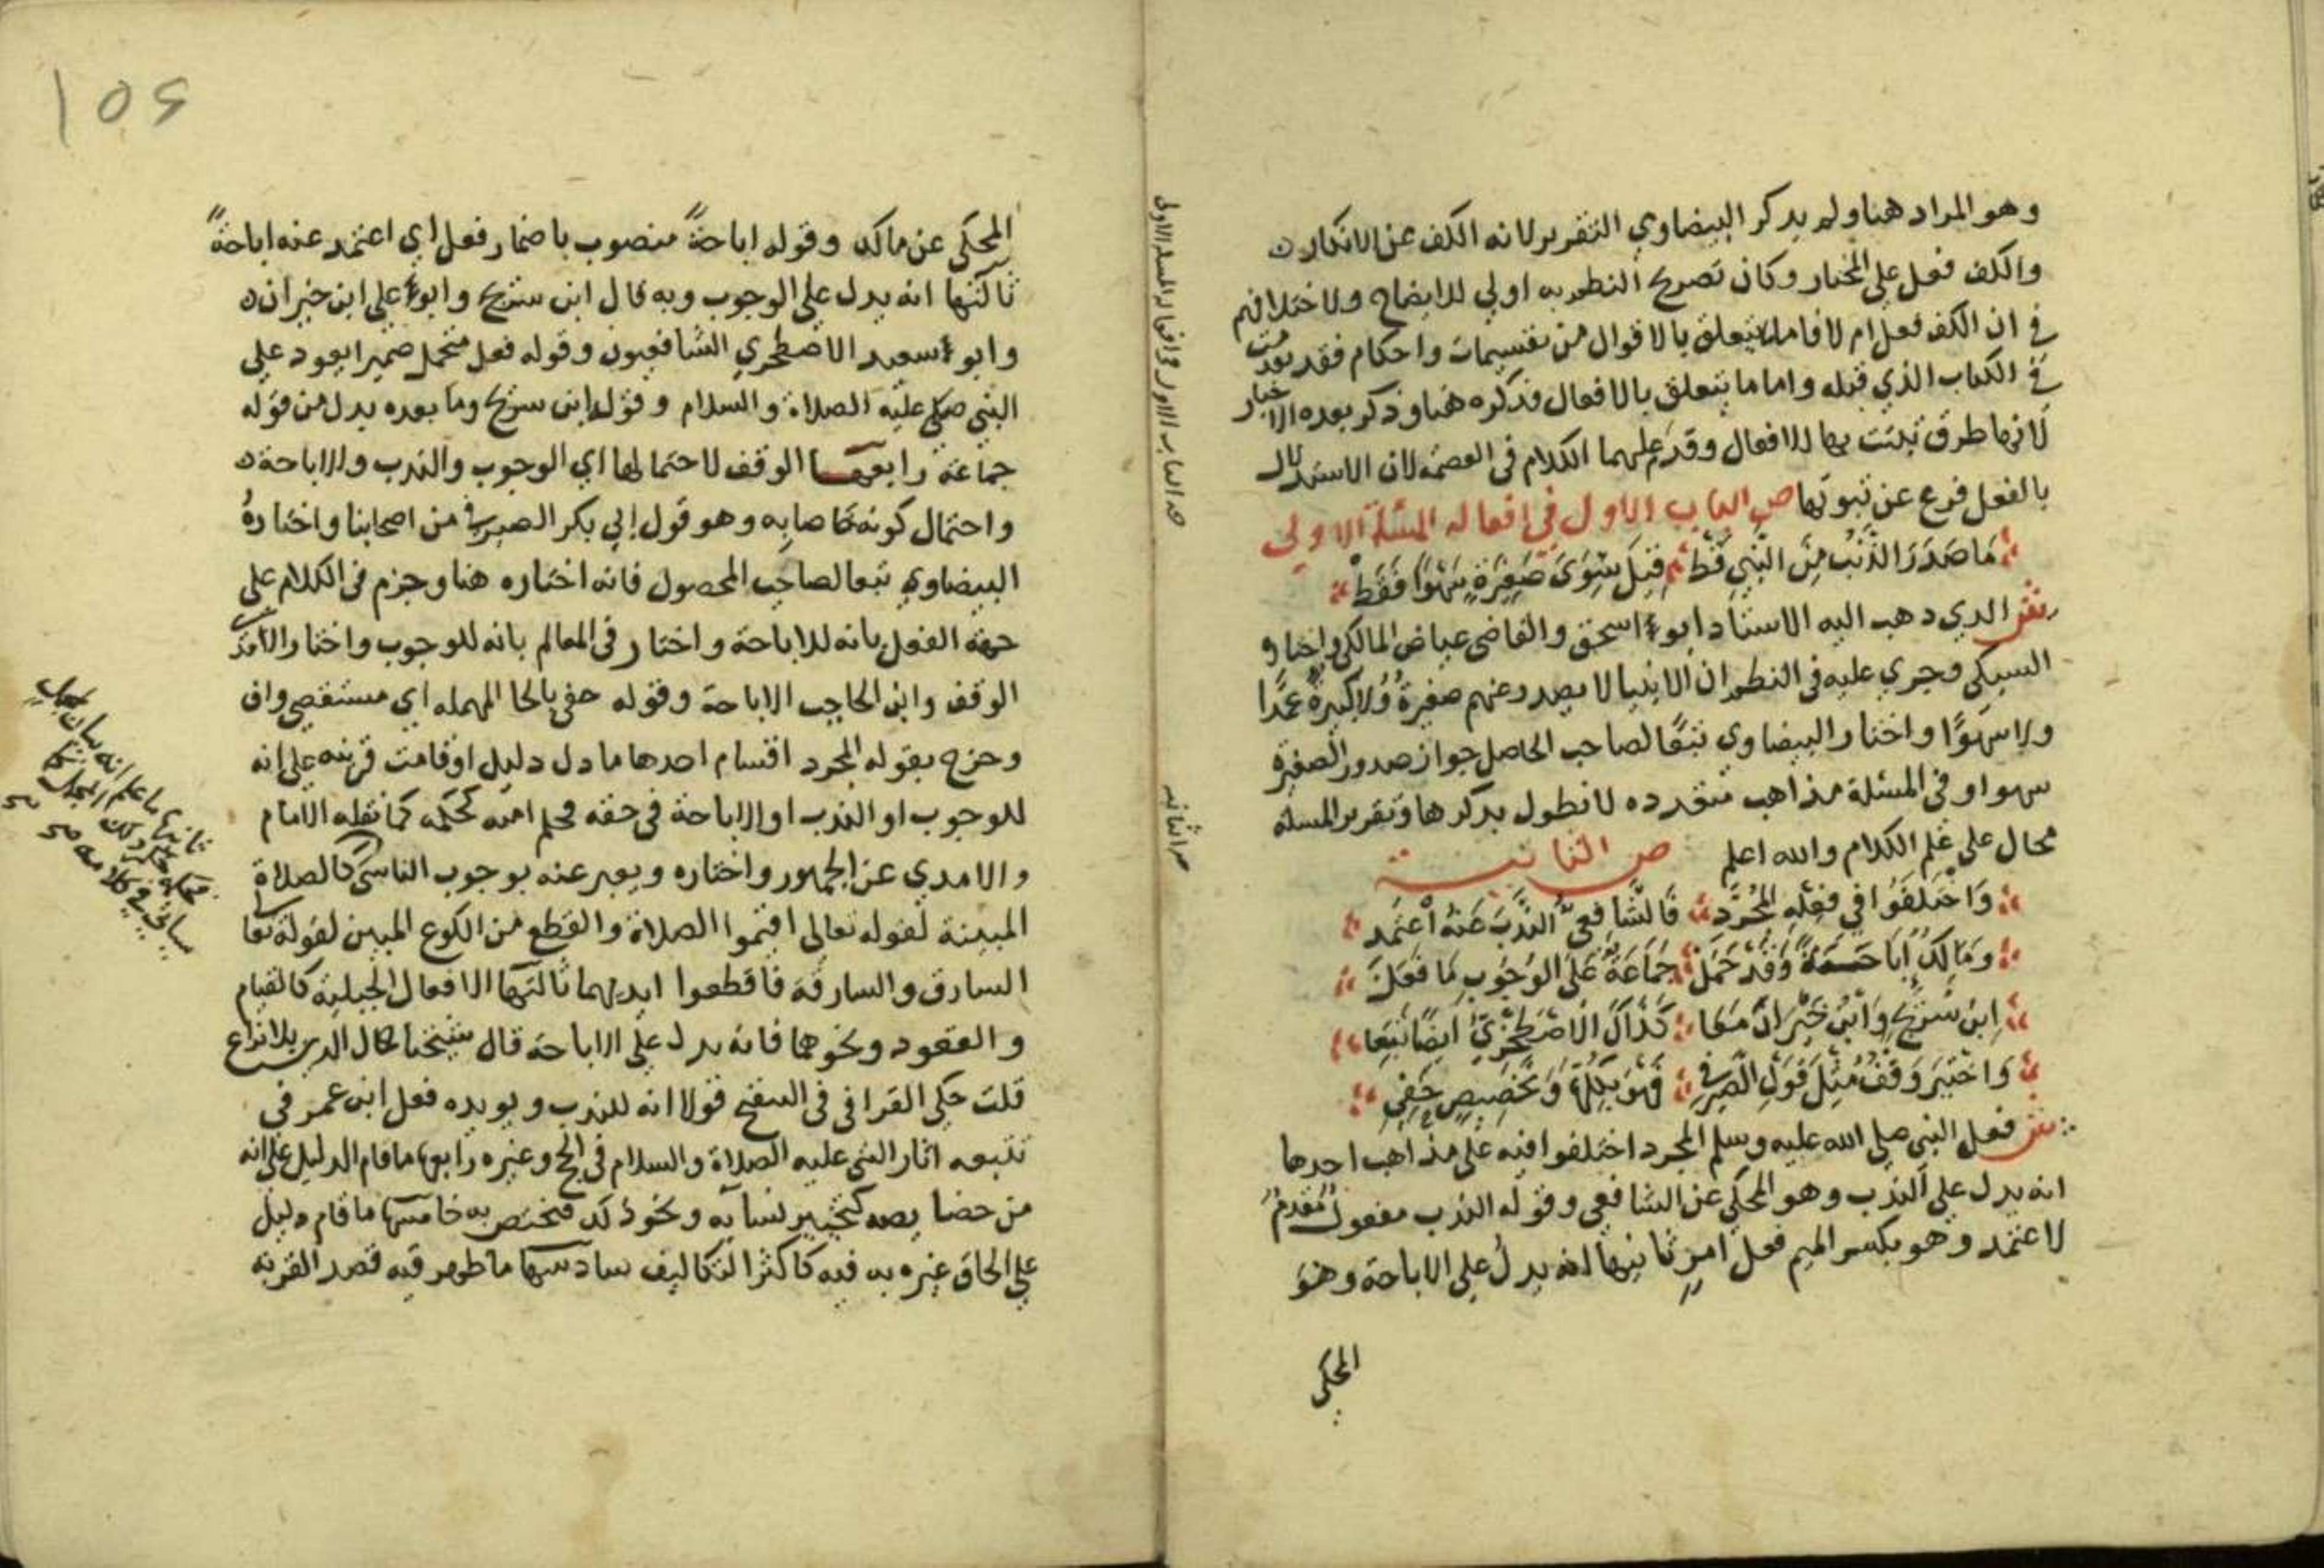 وهو المراد هنا ولم يدكر البيضاوي التقرير لانه الكف عن الانكار
والكف فعل على المختار وكان تصريح النظم به اولي للايضاح ولاختلافهم
في ان الكف فعل ام لا فاما ما يتعلق بالاقوال من تقسيمات واحكام فقد تقدمت
في الكتاب الذي قبله واما ما يتعلق بالافعال فذكره هنا وذكر بعده الاخبار
لانها طرق تثبت بها الافعال وقدم عليهما الكلام في العصمة لان الاستدلال
بالفعل فرع عن ثبوتها ص الباب الاول في افعاله المسئلة الاولي
مَا صَدَرَ الذَّنْبُ مِنَ النَّبِي قَطْ قِيلَ سِوَى صَغِيرَةٍ سَهْوًا فَقَطْ
ش الدي دهب اليه الاستاد ابو اسحق والقاضي عياض المالكي واختاره
السبكي وجري عليه في النظم ان الانبيا لا يصدر عنهم صغيرة ولا كبيرة عمدًا
ولا سهوًا واختار البيضاوي تبعًا لصاحب الحاصل جواز صدور الصغيرة
سهوا وفي المسئلة مذاهب متعدده لا نطول بدكرها وتقرير المسلة
محال على علم الكلام والله اعلم ص الثانية
وَاخْتَلَفُوا فِي فِعْلِهِ الْمُجَرَّدِ فَالشَّافِعِيُّ النَّدْبَ عَنْهُ اعْتَمِد
وَمَالِكٌ إِبَاحَةً وَقَدْ حَمَلْ جَمَاعَةٌ عَلَى الْوُجُوبِ مَا فَعَلْ
اِبْنُ سُرَيْجٍ وَابْنُ خَيْرَانَ مَعَا كَذَاكَ الْاصْطَخْرِيُّ ايْضًا تَبِعَا
وَاخْتِيرَ وَقْفٌ مِثْلَ قَوْلِ الصَّيْرَفِي فَهْوَ لِكُلِّهَا وَتَخْصِيصٍ حَفِي
ش فعل النبي صلى الله عليه وسلم المجرد اختلفوا فيه على مذاهب احدها
انه يدل على الندب وهو المحكي عن الشافعي وقوله الندب مفعول مقدم
لاعتمد وهو بكسر الميم فعل امر ثانيها انه يدل على الاباحة وهو
المحكي
المحكي عن مالك وقوله اباحةً منصوب باضمار فعل اي اعتمد عنه اباحةً
ثالثها انه يدل على الوجوب وبه قال ابن سريج وابو علي ابن خيران
وابو سعيد الاصطخري الشافعيون وقوله فعل متحمل ضميرا يعود على
النبي صلى عليه الصلاة والسلام وقوله ابن سريج وما بعده بدل من قوله
جماعة رابعها الوقف لاحتمالها اي الوجوب والندب والاباحة
واحتمال كونه خاصا به وهو قول ابي بكر الصيرفي من اصحابنا واختاره
البيضاوي تبعا لصاحب المحصول فانه اختاره هنا وجزم في الكلام على
جهة الفعل بانه للاباحة واختار في المعالم بانه للوجوب واختار الآمدي
الوقف وابن الحاجب الاباحة وقوله حفي بالحا المهمله اي مستقصي واف
وخرج بقوله المجرد اقسام احدها ما دل دليل او قامت قرينه على انه
للوجوب او الندب او الاباحة في حقه فحكم امته كحكمه كما نقله الامام
والامدي عن الجمهور واختاره ويعبر عنه بوجوب التاسي كالصلاة
المبينة لقوله تعالى اقيموا الصلاة والقطع من الكوع المبين لقوله تعا
السارق والسارقة فاقطعوا ايديهما ثالثها الافعال الجبلية كالقيام
والقعود ونحوهما فانه يدل على الاباحة قال شيخنا كمال الدين بلا نزاع
قلت حكي القرافي في التنقيح قولا انه للندب ويويده فعل ابن عمر في
تتبعه اثار النبي عليه الصلاة والسلام في الحج وغيره رابعها ما قام الدليل على انه
من خصايصه كتخيير نسايه ونحو ذلك فتختص به خامسها ما قام دليل
على الحاق غيره به فيه كاكثر التكاليف سادسها ما ظهر فيه قصد القربة
ثانيها ما علم انه بيان